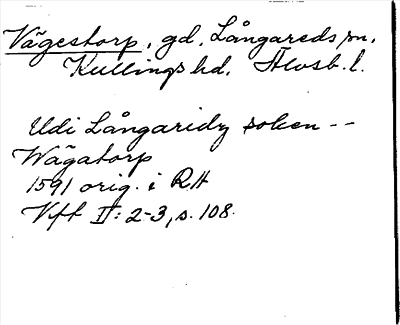 Vägestorp, gd, Långareds sn,
Kullings hd. Älvsb. l.
Udi Långaridz soken --
Wägatorp
1591 orig. i RA
Vft II: 2-3, s. 108.